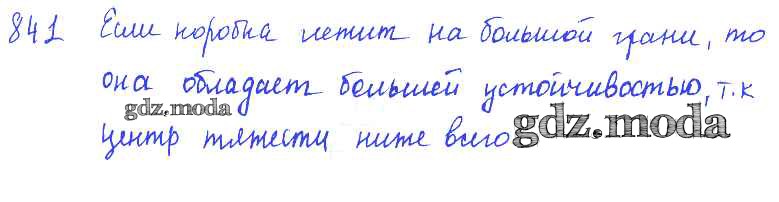 841 Если коробка лежит на большой грани, то
она обладает большей устойчивостью, т.к
gdz.moda
центр тяжести ниже всего
gdz.moda